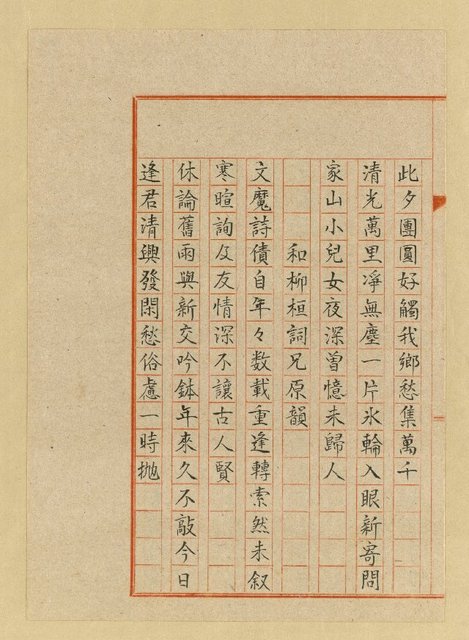 此夕團圓好觸我鄉愁集萬千
清光萬里淨無塵一片氷輪入眼新寄問
家山小兒女夜深曽憶未歸人
和柳桓詞兄原韻
文魔詩債自年々数載重逢轉索然未叙
寒暄詢及友情深不讓古人賢
休論舊雨與新交吟鉢年來久不敲今日
逢君清興發閑愁俗慮一時抛